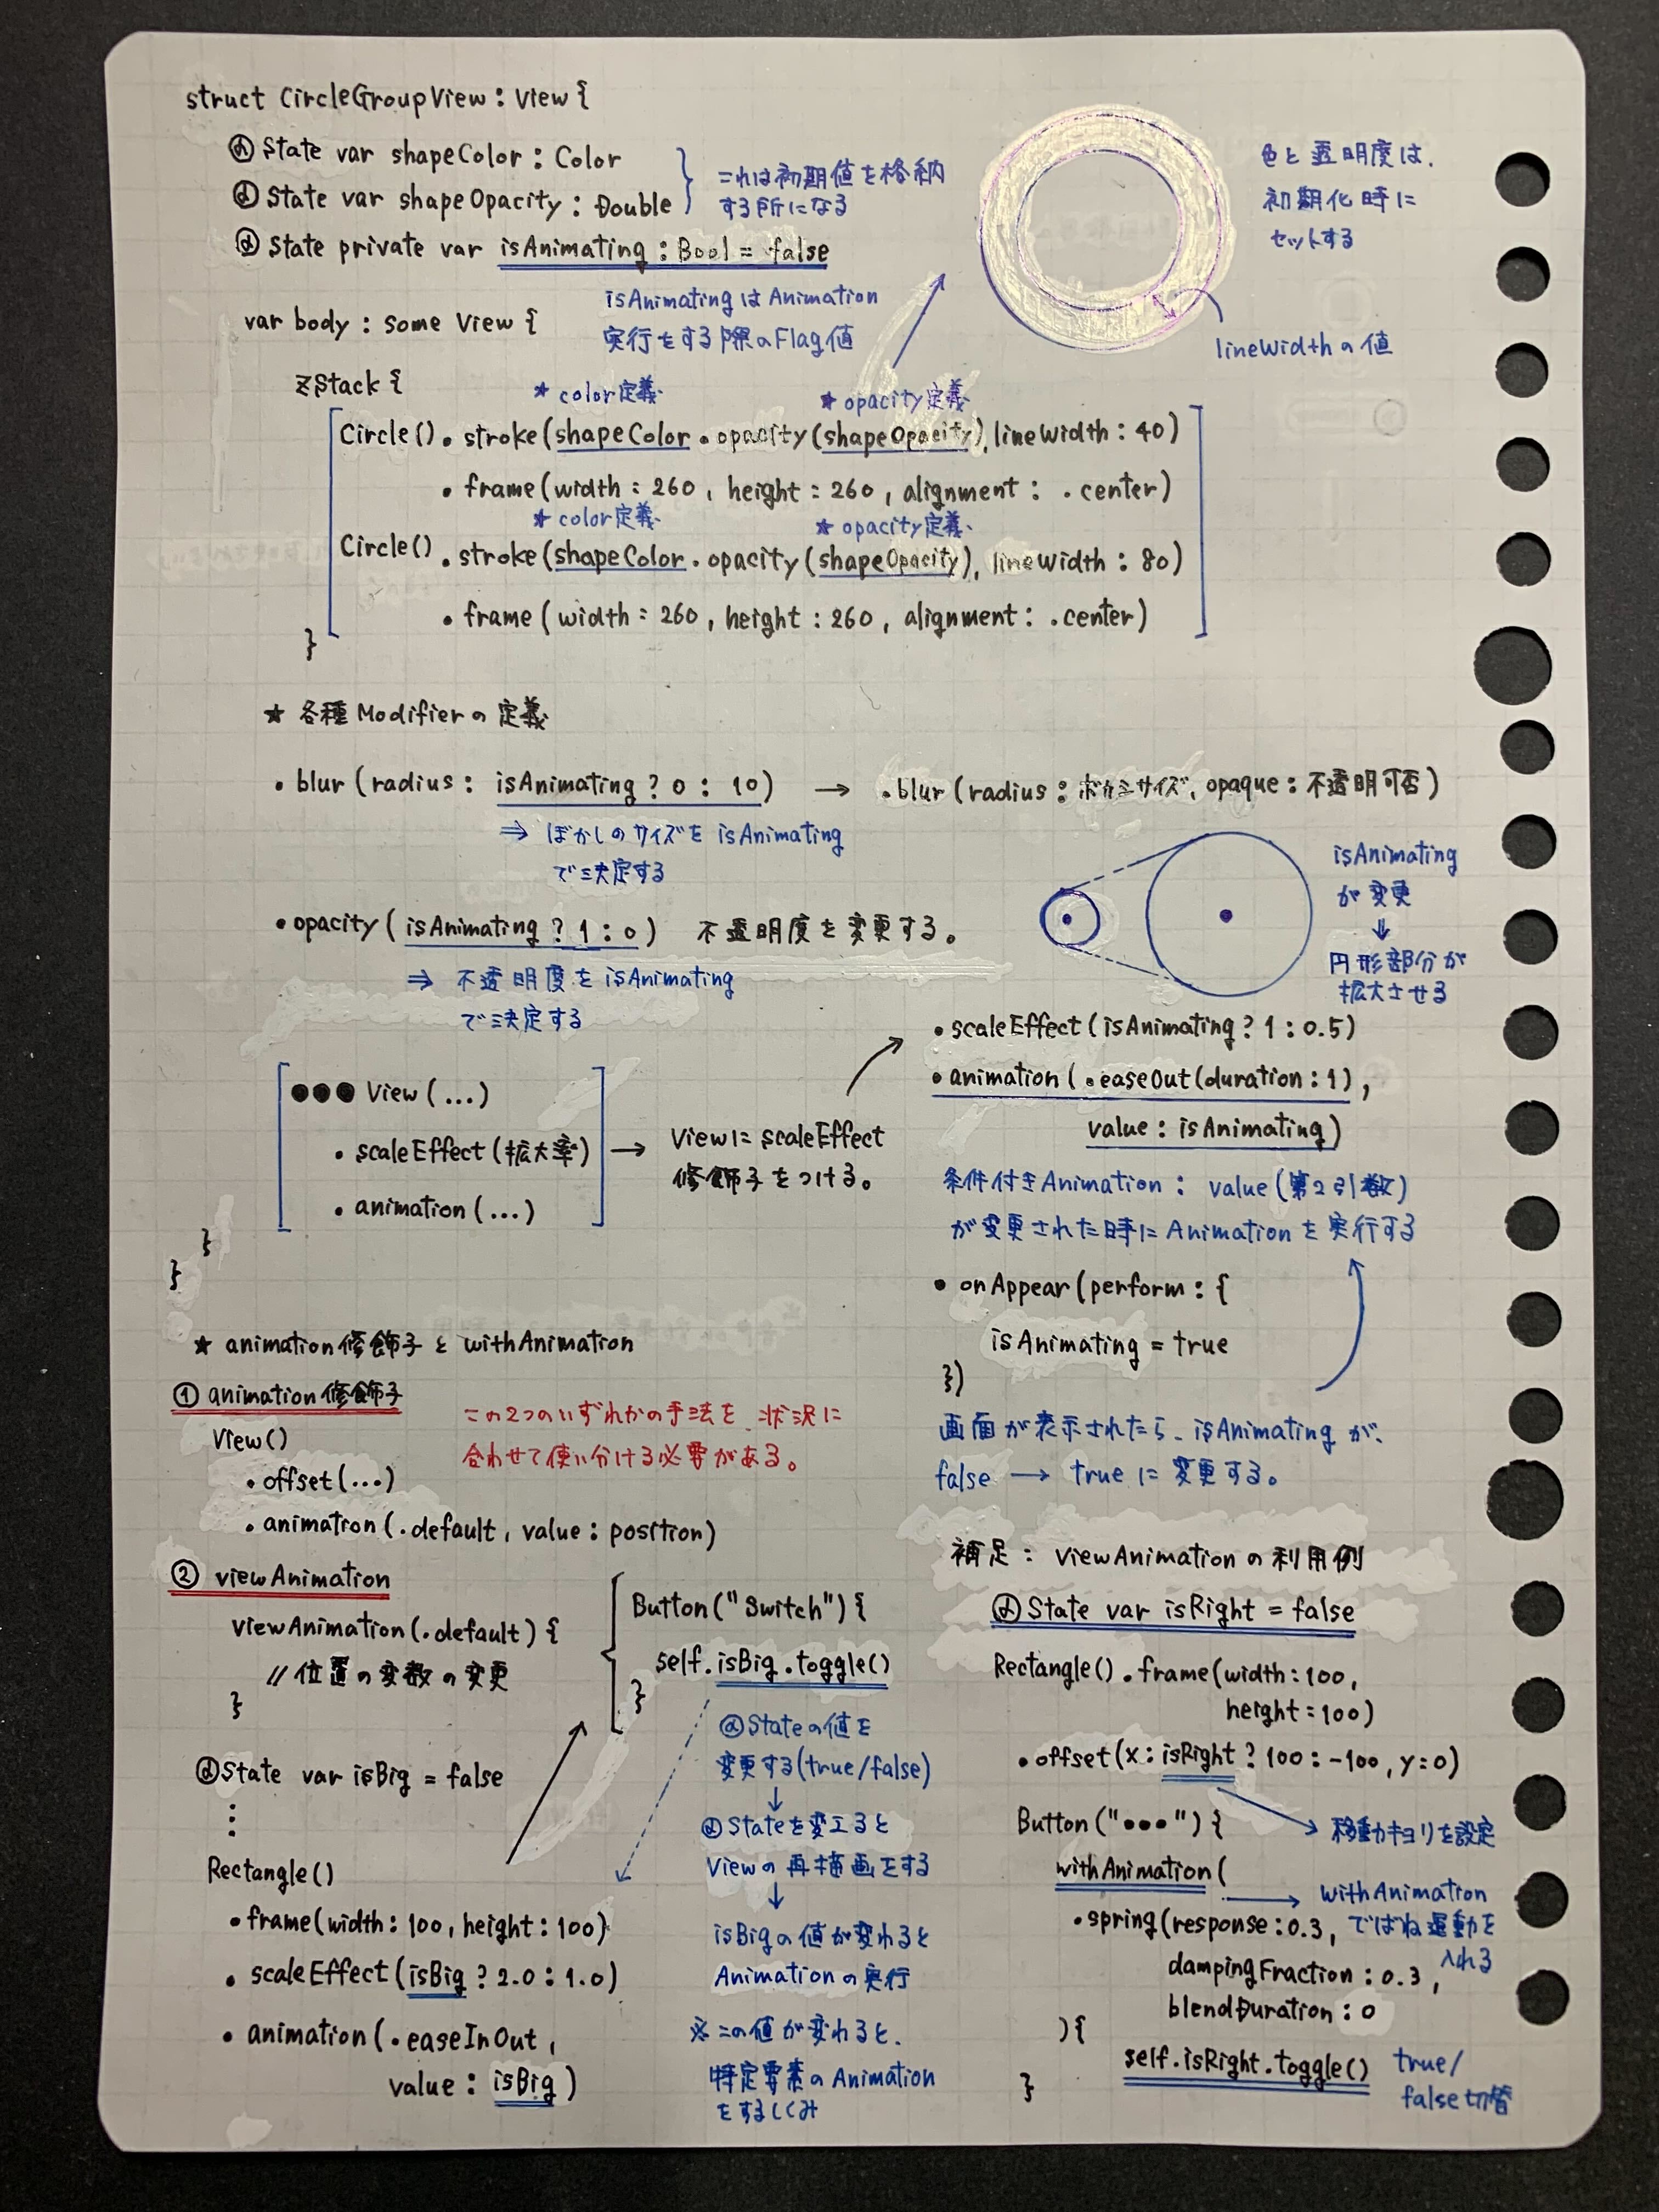 struct CircleGroupView : View {
@State var shapeColor : Color
@State var shapeOpacity : Double
これは初期値を格納
する所になる
@State private var isAnimating : Bool = false
色と透明度は、
初期化時に
セットする
lineWidthの値
isAnimatingはAnimation
実行をする際のFlag値
var body : some View {
ZStack {
★ color定義
★ opacity定義
Circle() . stroke(shapeColor . opacity(shapeOpacity), lineWidth : 40)
. frame(width : 260 , height : 260 , alignment : .center)
★ color定義
★ opacity定義
Circle() . stroke(shapeColor . opacity(shapeOpacity), lineWidth : 80)
. frame(width : 260 , height : 260 , alignment : .center)
}
★ 各種Modifierの定義
. blur(radius : isAnimating ? 0 : 10) → .blur(radius : ボカシサイズ, opaque : 不透明可否)
⇒ ぼかしのサイズを isAnimating
で決定する
isAnimating
が変更
↓
円形部分が
拡大させる
. opacity(isAnimating ? 1 : 0) 不透明度を変更する。
⇒ 不透明度を isAnimating
で決定する
●●● View(...)
. scaleEffect(拡大率)
. animation(...)
→ Viewに scaleEffect
修飾子をつける。
}
}
. scaleEffect(isAnimating ? 1 : 0.5)
. animation(.easeOut(duration : 1),
value : isAnimating)
条件付きAnimation : value(第2引数)
が変更された時に Animationを実行する
. onAppear(perform : {
isAnimating = true
})
画面が表示されたら、isAnimatingが、
false → true に変更する。
★ animation修飾子と withAnimation
① animation修飾子
この2つのいずれかの手法を、状況に
合わせて使い分ける必要がある。
View()
. offset(...)
. animation(.default, value : position)
② viewAnimation
viewAnimation(.default) {
// 位置の変数の変更
}
Button("Switch") {
self.isBig.toggle()
}
@State var isBig = false
⋮
Rectangle()
. frame(width : 100, height : 100)
. scaleEffect(isBig ? 2.0 : 1.0)
. animation(.easeInOut,
value : isBig)
@Stateの値を
変更する(true/false)
↓
@Stateを変えると
Viewの再描画をする
↓
isBigの値が変わると
Animationの実行
※この値が変わると、
特定要素のAnimation
をするしくみ
補足 : viewAnimationの利用例
@State var isRight = false
Rectangle() . frame(width : 100,
height : 100)
. offset(x : isRight ? 100 : -100, y = 0)
移動キョリを設定
Button("●●●") {
withAnimation(
→ withAnimation
でばね運動を
入れる
. spring(response : 0.3,
dampingFraction : 0.3,
blendDuration : 0
){
self.isRight.toggle()
true/
false切替
}